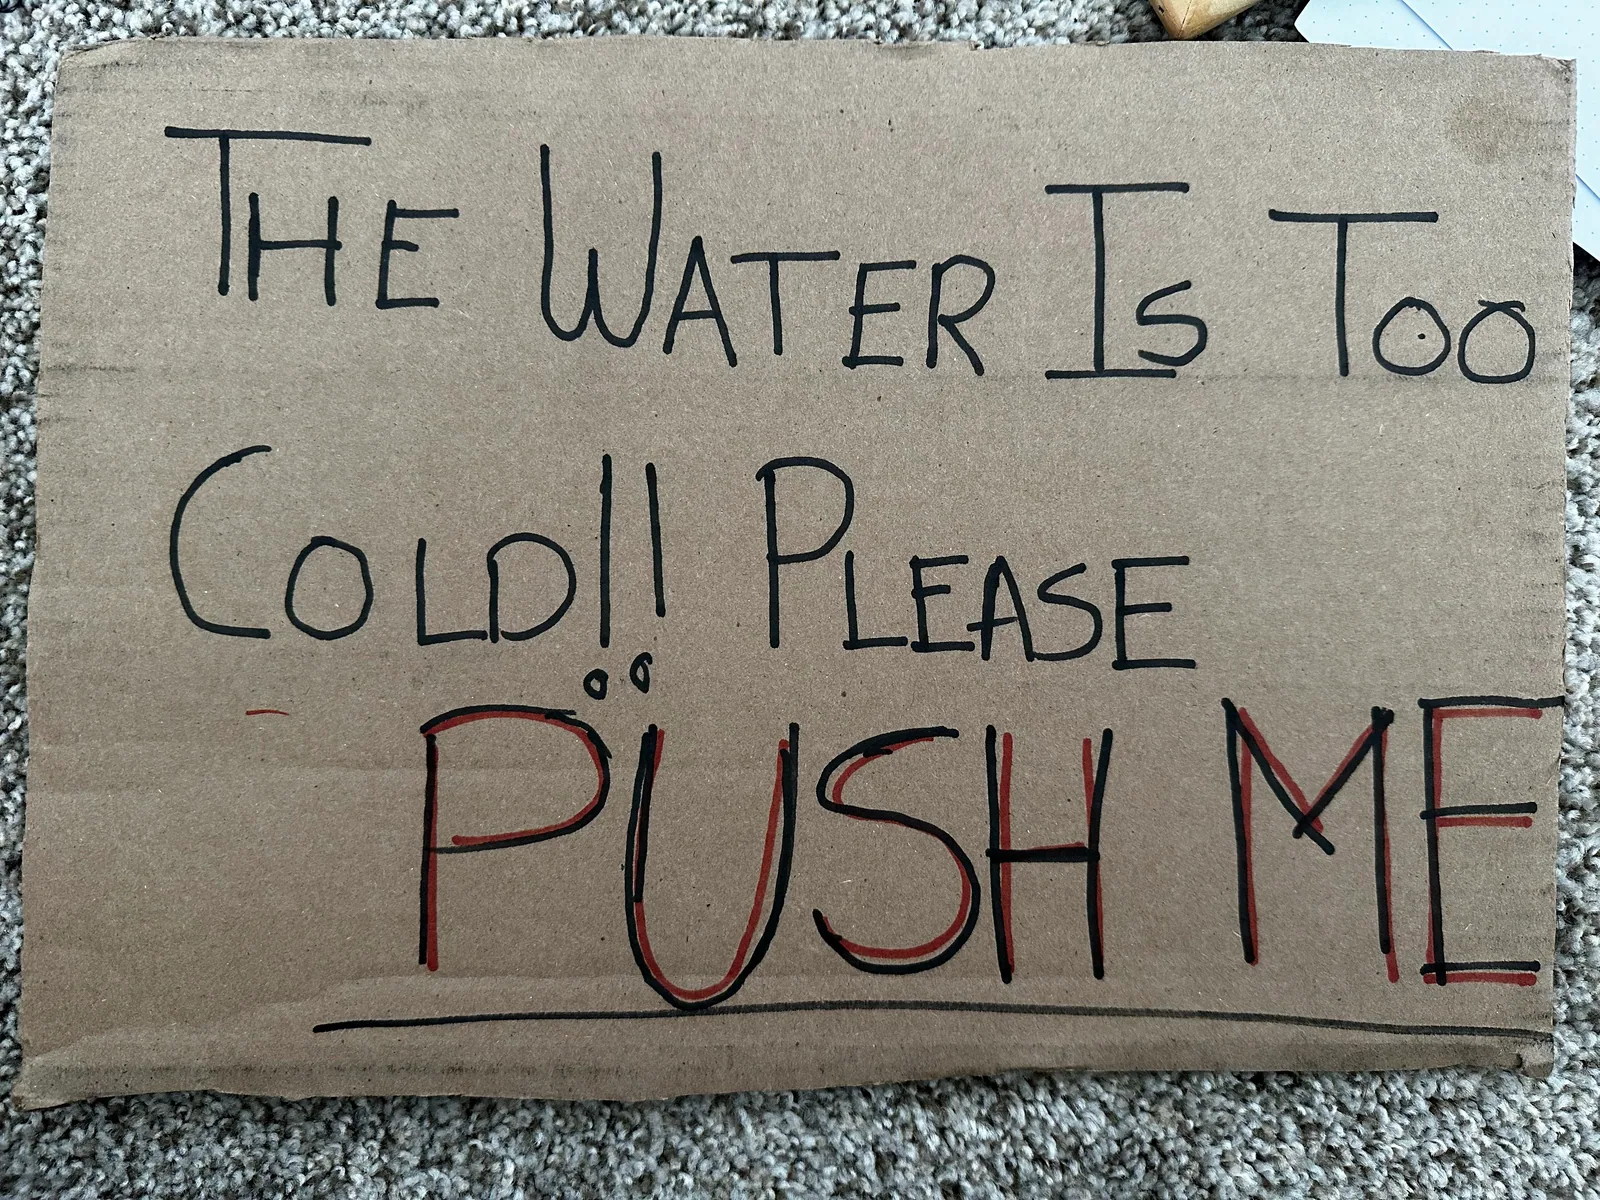 THE WATER IS TOO
COLD!! PLEASE
PUSH ME